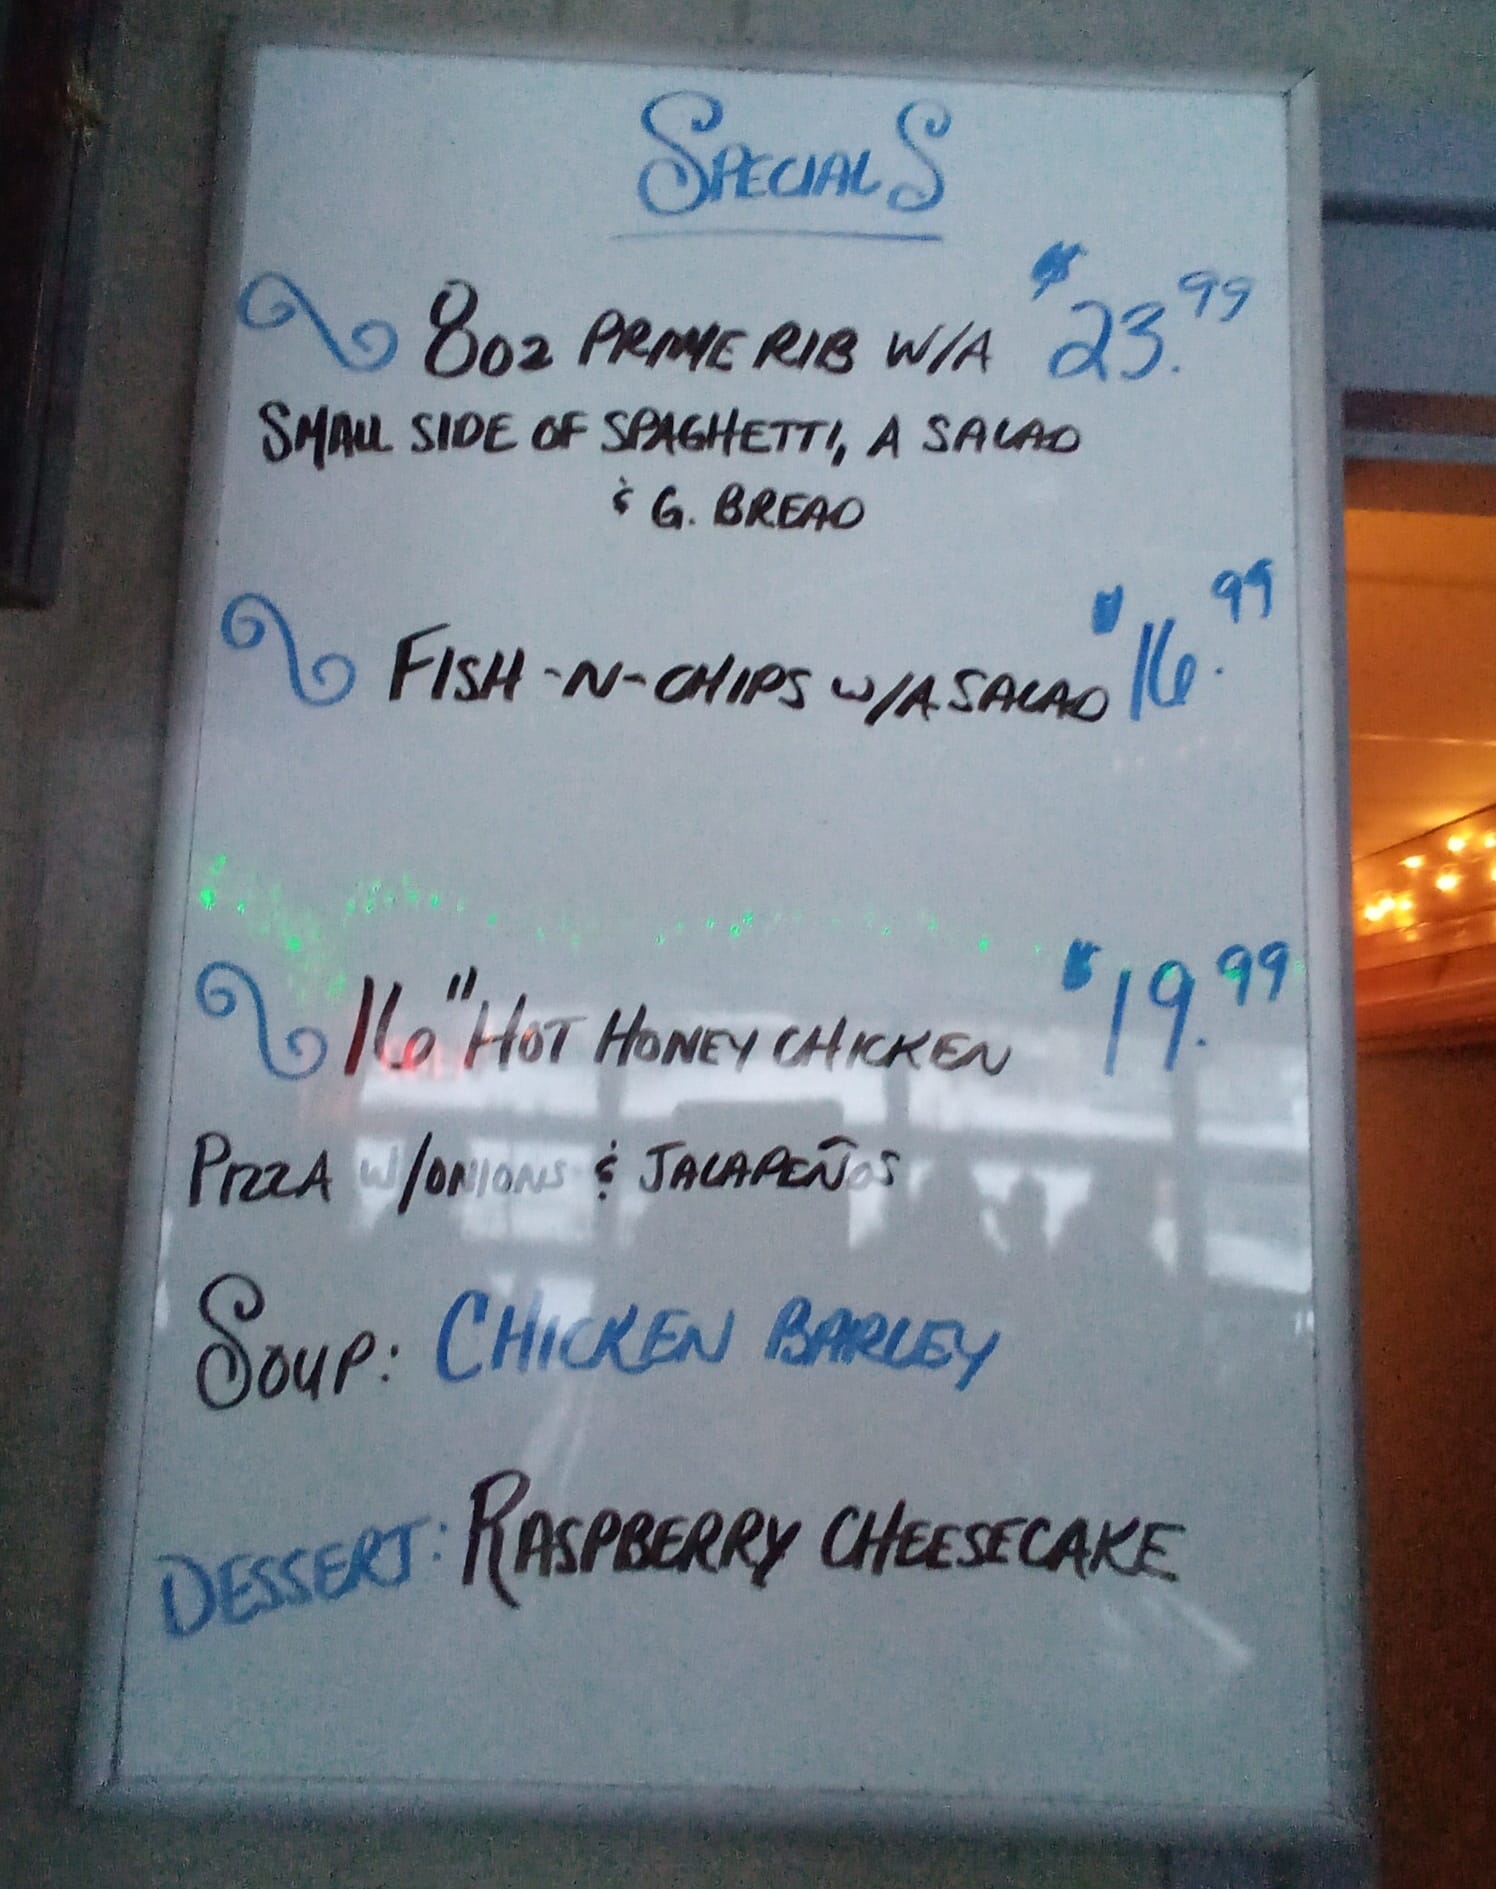 SPECIALS
8oz PRIME RIB W/A $23.99
SMALL SIDE OF SPAGHETTI, A SALAD
& G. BREAD
FISH-N-CHIPS W/A SALAD $16.99
16" HOT HONEY CHICKEN $19.99
PIZZA W/ONIONS & JALAPEÑOS
SOUP: CHICKEN BARLEY
DESSERT: RASPBERRY CHEESECAKE